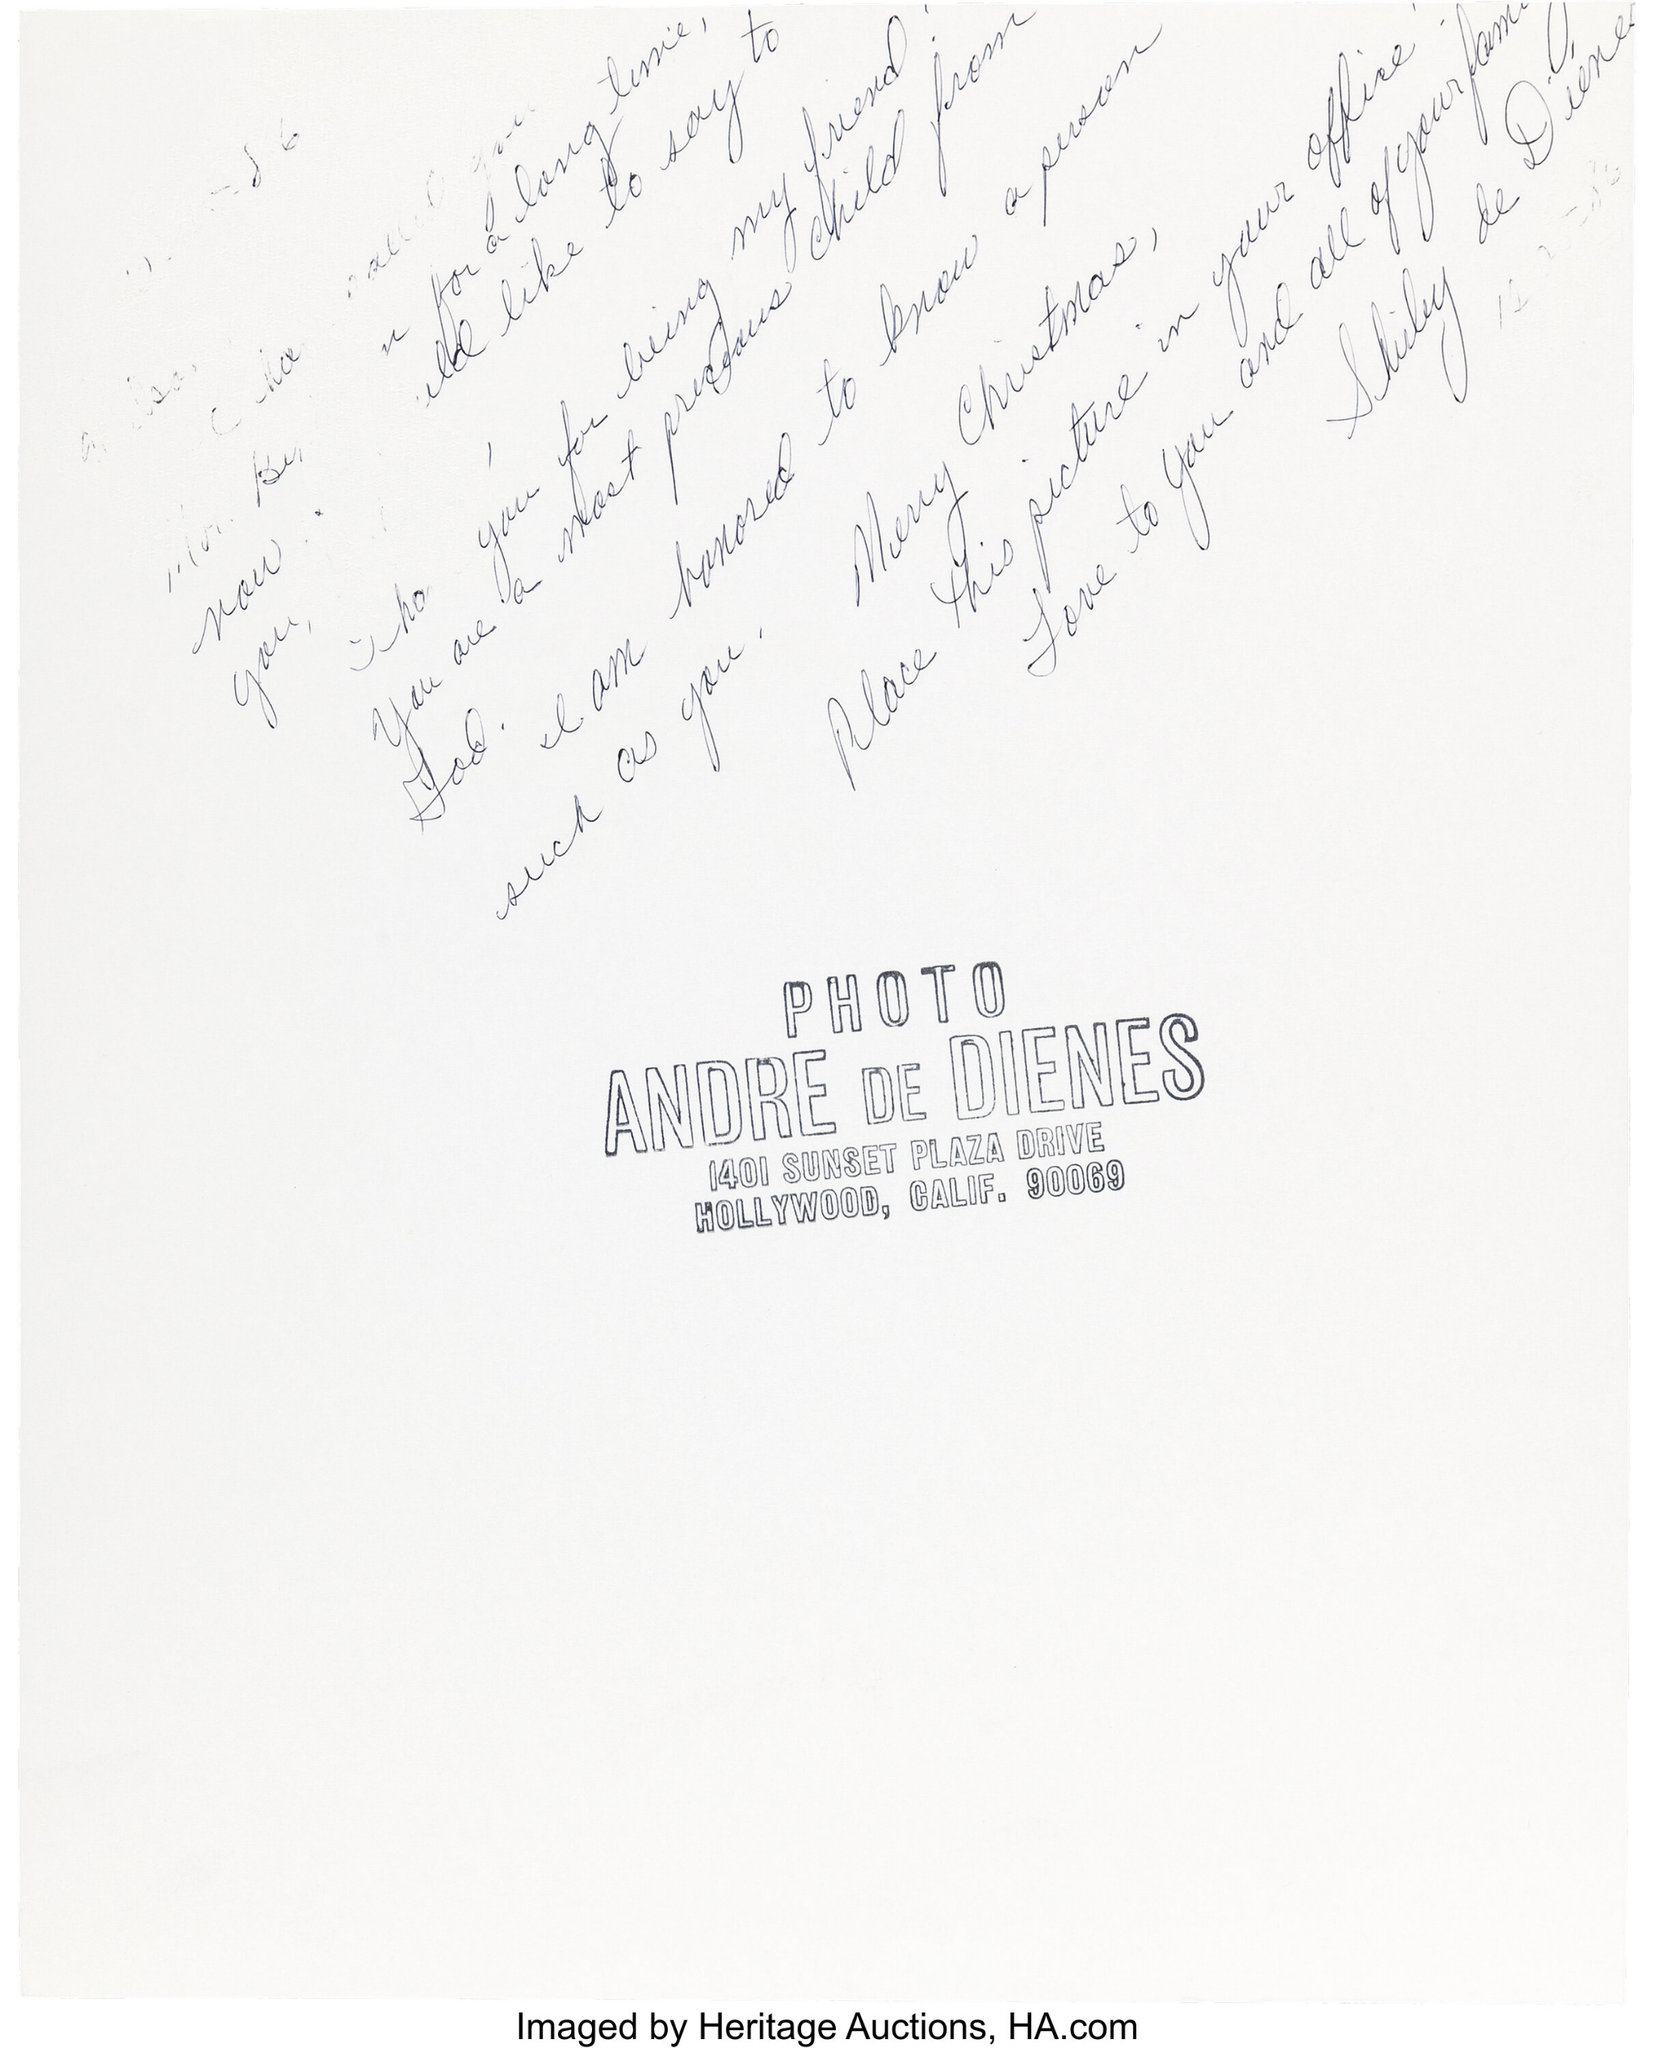 -86
for a long time,
now
like to say to
you,
you for being my friend!
You are a most precious child from
God. I am honored to know a person
such as you. Merry Christmas,
Place this picture in your office!
Love to you and all of your fami
Shirley de Dienes
PHOTO
ANDRE DE DIENES
1401 SUNSET PLAZA DRIVE
HOLLYWOOD, CALIF. 90069
Imaged by Heritage Auctions, HA.com